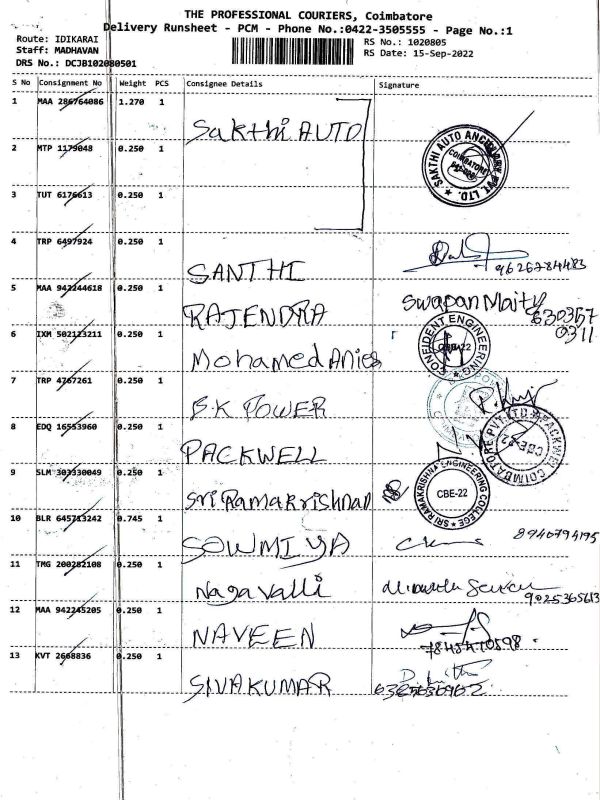 THE PROFESSIONAL COURIERS, Coimbatore
Delivery Runsheet - PCM - Phone No.:0422-3505555 - Page No.:1
Route: IDIKARAI
Staff: MADHAVAN
DRS No.: DCJB102080501
RS No.: 1020805
RS Date: 15-Sep-2022
S No Consignment No Weight PCS Consignee Details Signature
1 MAA 286764086 1.270 1 Sakthi AUTO
2 MTP 1179048 0.250 1
SAKTHI AUTO ANCILLARY PVT LTD.
COIMBATORE
3 TUT 6176613 0.250 1
4 TRP 6497924 0.250 1 SANTHI
9626784483
5 MAA 942244618 0.250 1 RAJENDRA Swapan Maity
630357
0311
6 IXM 502123211 0.250 1 Mohamed Anies
CONFIDENT ENGINEERING
7 TRP 4767261 0.250 1 B.K POWER
8 EDQ 16553960 0.250 1 PACKWELL
COIMBATORE PVT. LTD
CBE-22
9 SLM 303330049 0.250 1 Sri Ramakrishnan
SRI RAMAKRISHNA ENGINEERING COLLEGE
CBE-22
10 BLR 645713242 0.745 1 SOWMIYA
8940794195
11 TMG 200282108 0.250 1 Nagavalli
9025365613
12 MAA 942245205 0.250 1 NAVEEN
7845410598
13 KVT 2668836 0.250 1 SIVAKUMAR